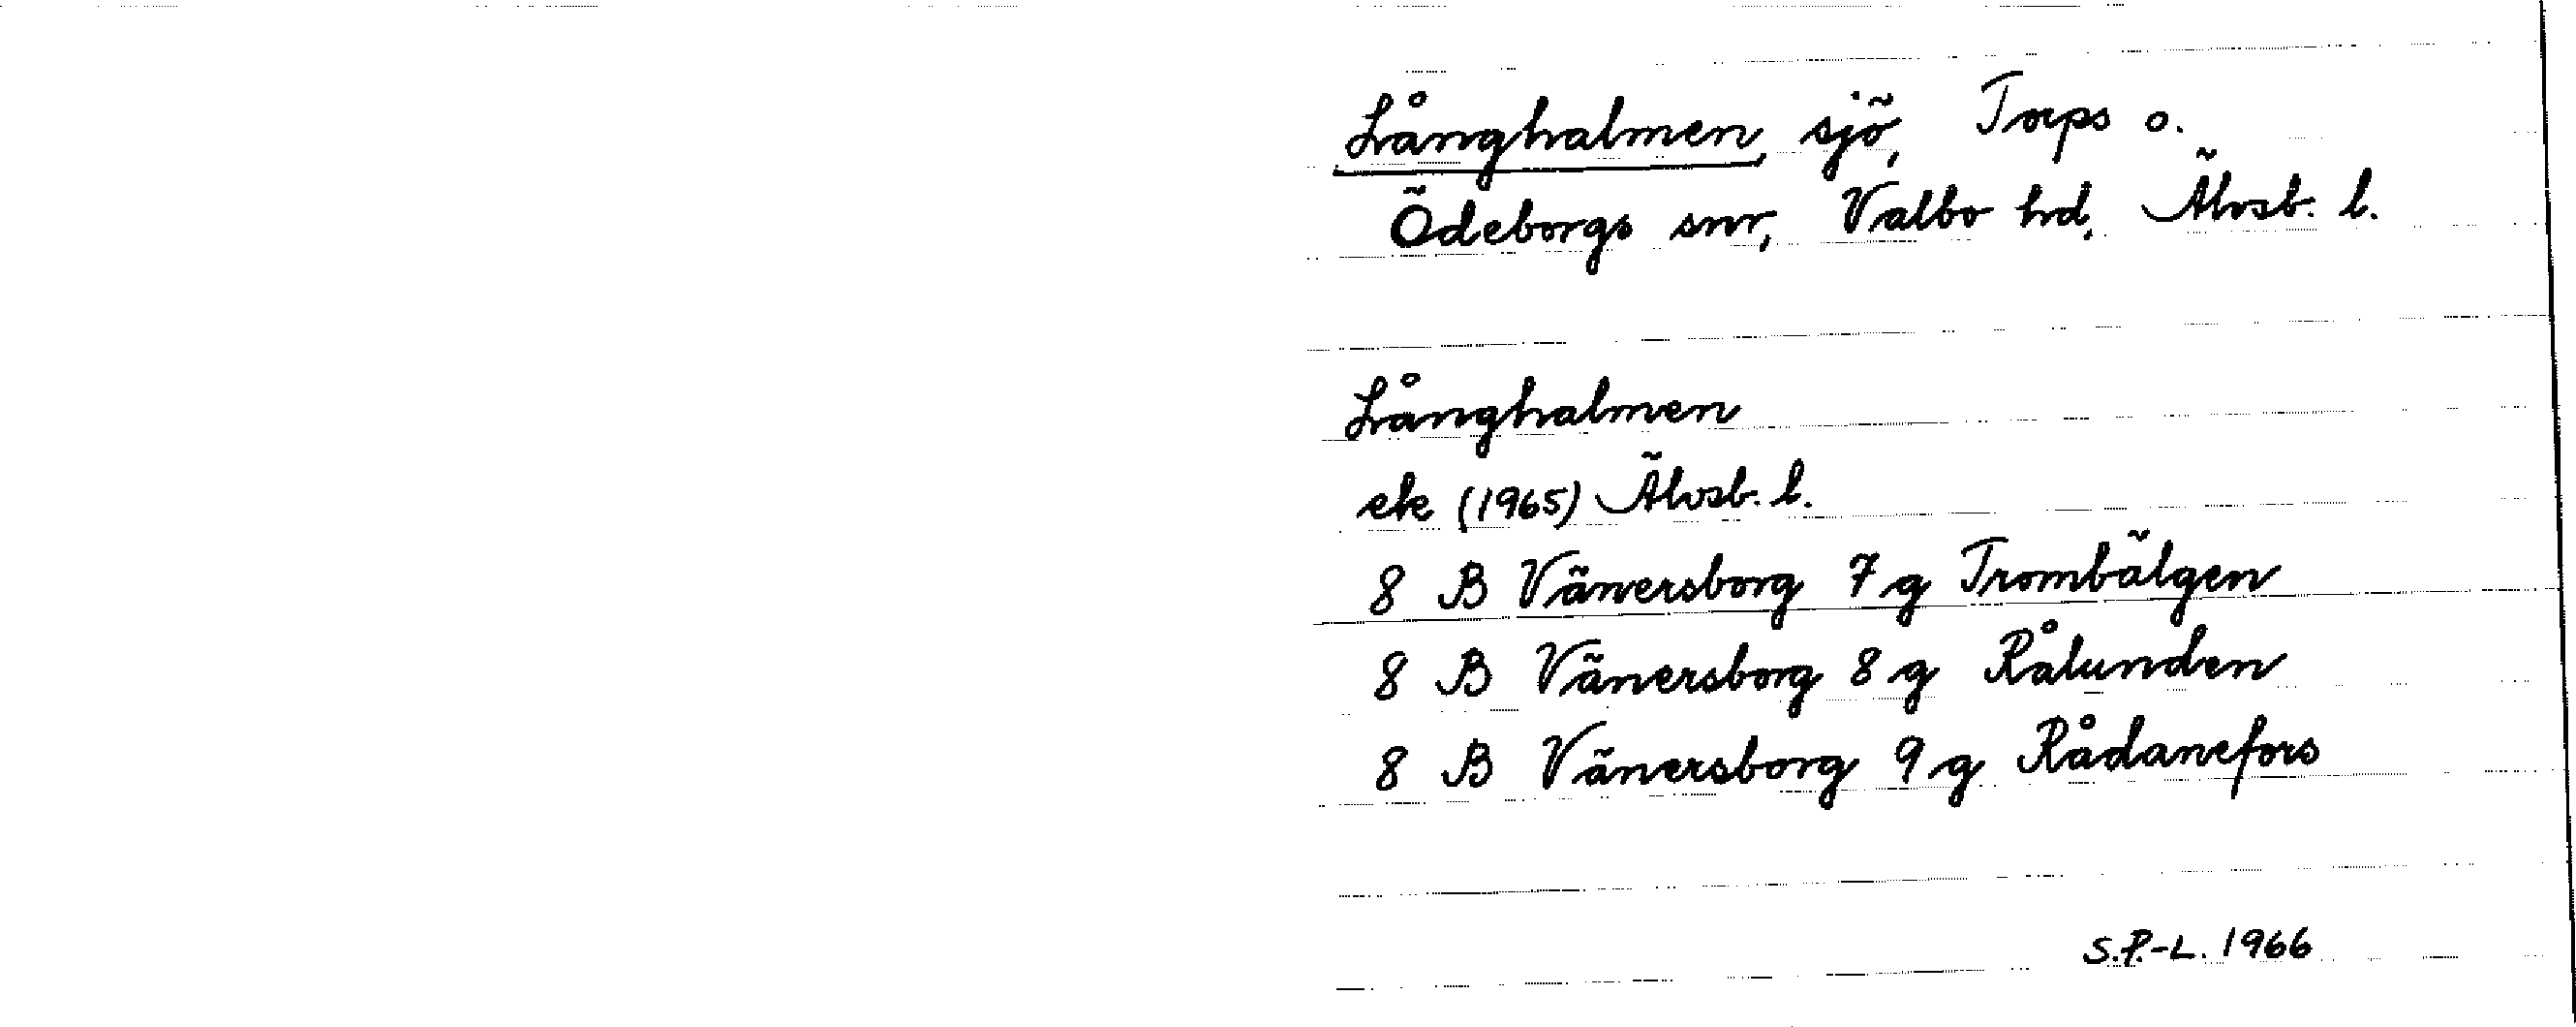 Långhalmen, sjö, Torps o.
Ödeborgs snr, Valbo hd, Älvsb. l.
Långhalmen
ek (1965) Älvsb. l.
8 B Vänersborg 7 g Trombälgen
8 B Vänersborg 8 g Rålunden
8 B Vänersborg 9 g Rådanefors
S.P.-L. 1966